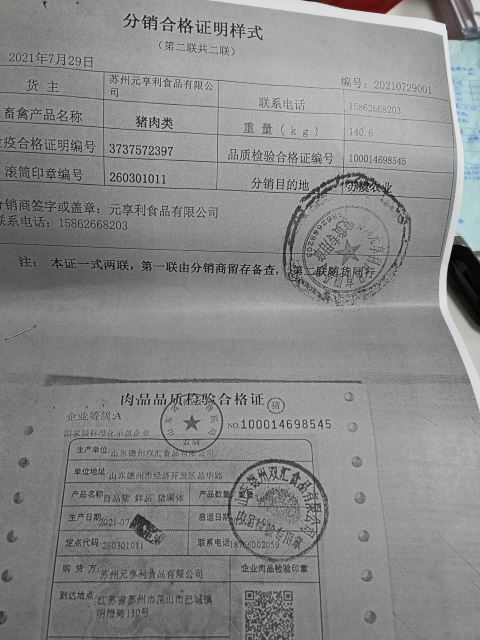 分销合格证明样式
（第二联共二联）
2021年7月29日
编号：20210729001
货 主 苏州元亨利食品有限公司 联系电话 15862668203
畜禽产品名称 猪肉类 重量（kg） 140.6
检疫合格证明编号 3737572397 品质检验合格证编号 100014698545
滚筒印章编号 260301011 分销目的地 农业
分销商签字或盖章：元亨利食品有限公司
联系电话：15862668203
注： 本证一式两联，第一联由分销商留存备查，第二联随货同行
肉品品质检验合格证 猪
企业等级：A NO 100014698545
国家级标准化示范企业
生产单位 山东德州双汇食品有限公司
单位地址 山东德州市经济开发区晶华路
产品名称 鲜品 产品数量 重量
生产日期 2021-07 启运日期
定点代码 260301011 联系电话 18766002059
购 货 方 苏州元亨利食品有限公司 企业肉品检验印章
到达地点 江苏省苏州市昆山市巴城镇
明澄路110号